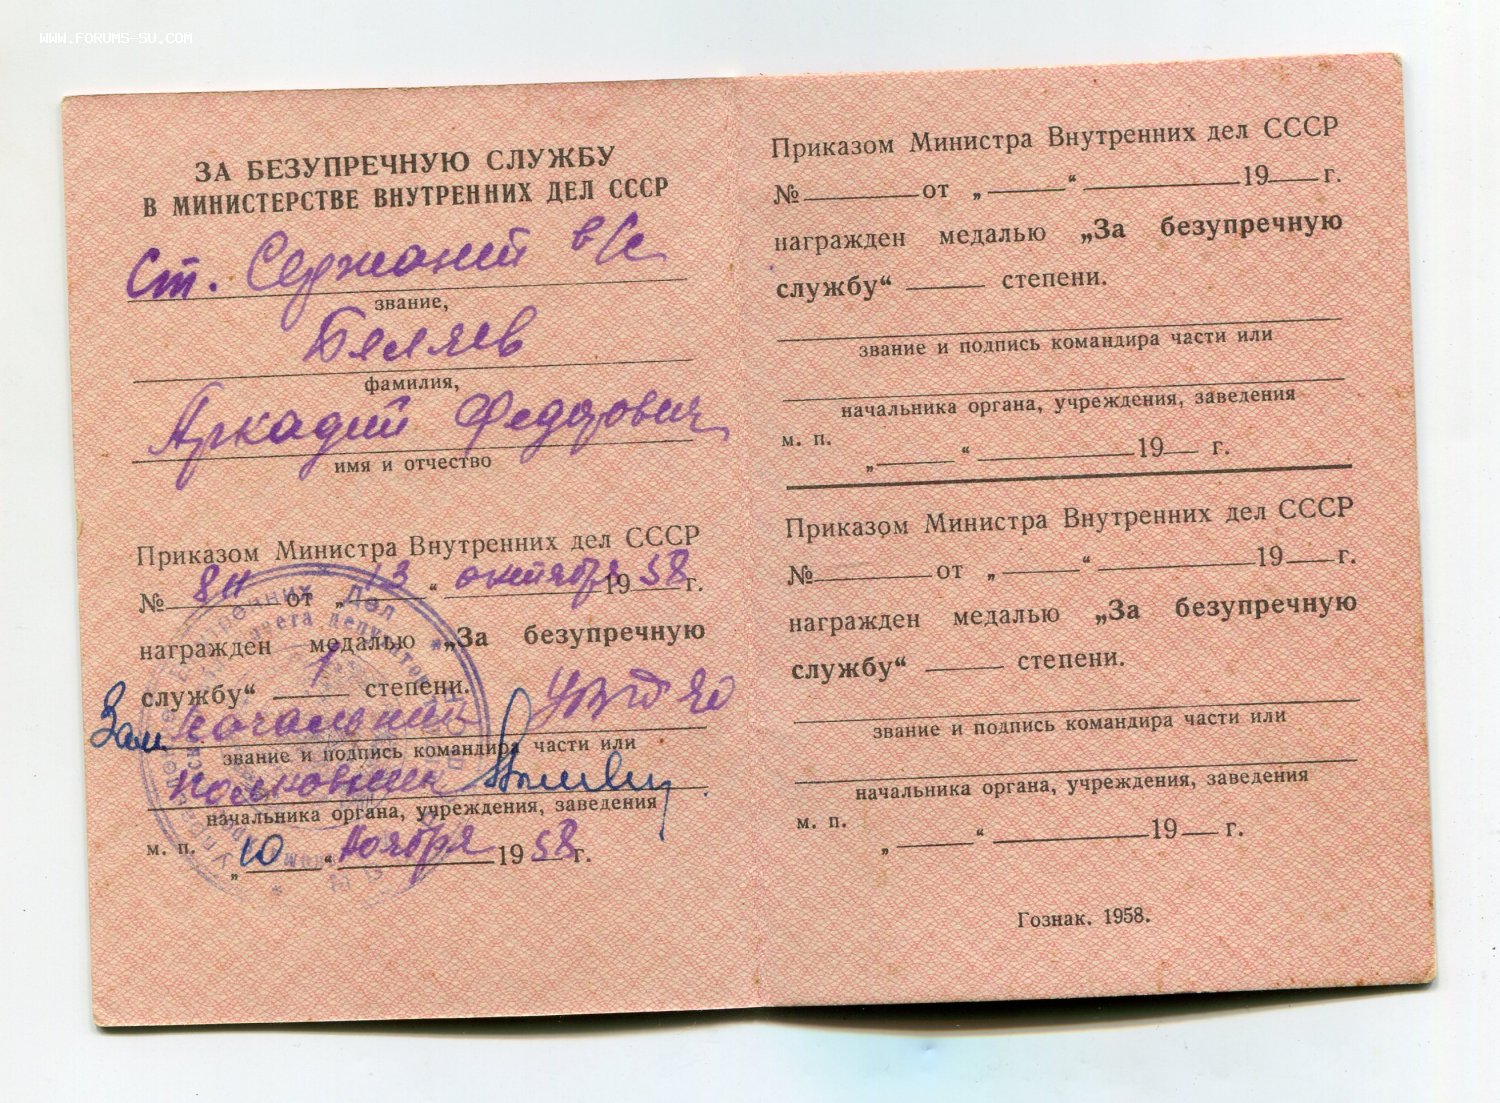 WWW.FORUMS-SU.COM
ЗА БЕЗУПРЕЧНУЮ СЛУЖБУ
В МИНИСТЕРСТВЕ ВНУТРЕННИХ ДЕЛ СССР
Ст. Сержант в/с
звание,
Беляев
фамилия,
Аркадий Федорович
имя и отчество
Приказом Министра Внутренних дел СССР
№ 8н от „13“ октября 1958 г.
награжден медалью „За безупречную
службу“ 1 степени.
Зам. начальник
звание и подпись командира части или
полковник
начальника органа, учреждения, заведения
м. п.
„10“ ноября 1958 г.
Приказом Министра Внутренних дел СССР
№ от „ “ 19 г.
награжден медалью „За безупречную
службу“ степени.
звание и подпись командира части или
начальника органа, учреждения, заведения
м. п.
„ “ 19 г.
Приказом Министра Внутренних дел СССР
№ от „ “ 19 г.
награжден медалью „За безупречную
службу“ степени.
звание и подпись командира части или
начальника органа, учреждения, заведения
м. п.
„ “ 19 г.
Гознак. 1958.